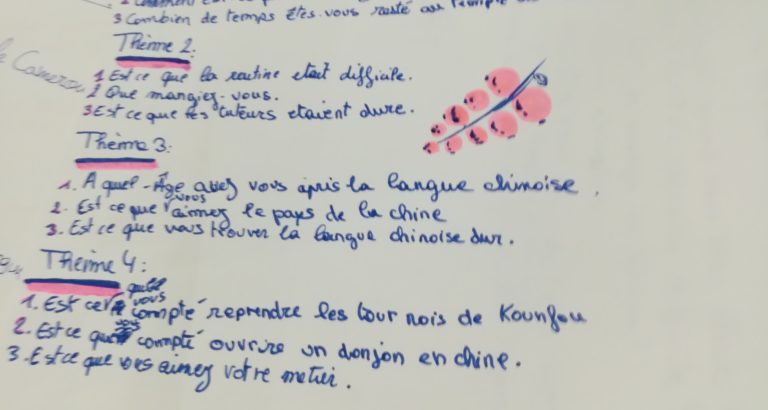 3 Combien de temps êtes-vous resté au temple
Thème 2:
1 Est ce que la routine etait difficile.
2 Que mangiez-vous.
3 Est ce que les tuteurs etaient dure.
le Cameroun
Thème 3:
1. A quel-Âge avez vous apris la langue chinoise.
2. Est ce que vous aimez le pays de la chine
3. Est ce que vous trouver la langue chinoise dur.
Thème 4:
1. Est ce que vous compté reprendre les tour nois de Kounfou
2. Est ce que vous compté ouvrire un donjon en chine.
3. Est ce que vous aimez votre metier.